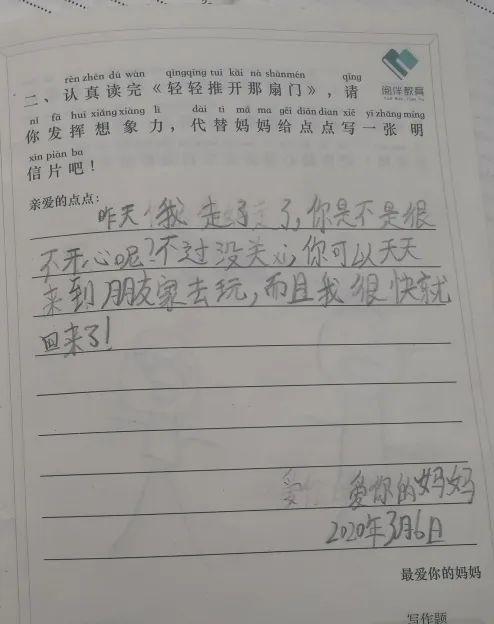 阅伴教育
YUE BAN JIAO YU
rèn zhēn dú wán qīngqīng tuī kāi nà shànmén qǐng
二、认真读完《轻轻推开那扇门》，请
nǐ fā huī xiǎng xiàng lì dài tì mā ma gěi diǎn dian xiě yī zhāng míng
你发挥想象力，代替妈妈给点点写一张明
xìn piàn ba
信片吧！
亲爱的点点：
昨天我走了了，你是不是很
不开心呢？不过没关心，你可以天天
来到朋友家去玩，而且我很快就
回来了！
爱 爱你的妈妈
2020年3月6日
最爱你的妈妈
写作题